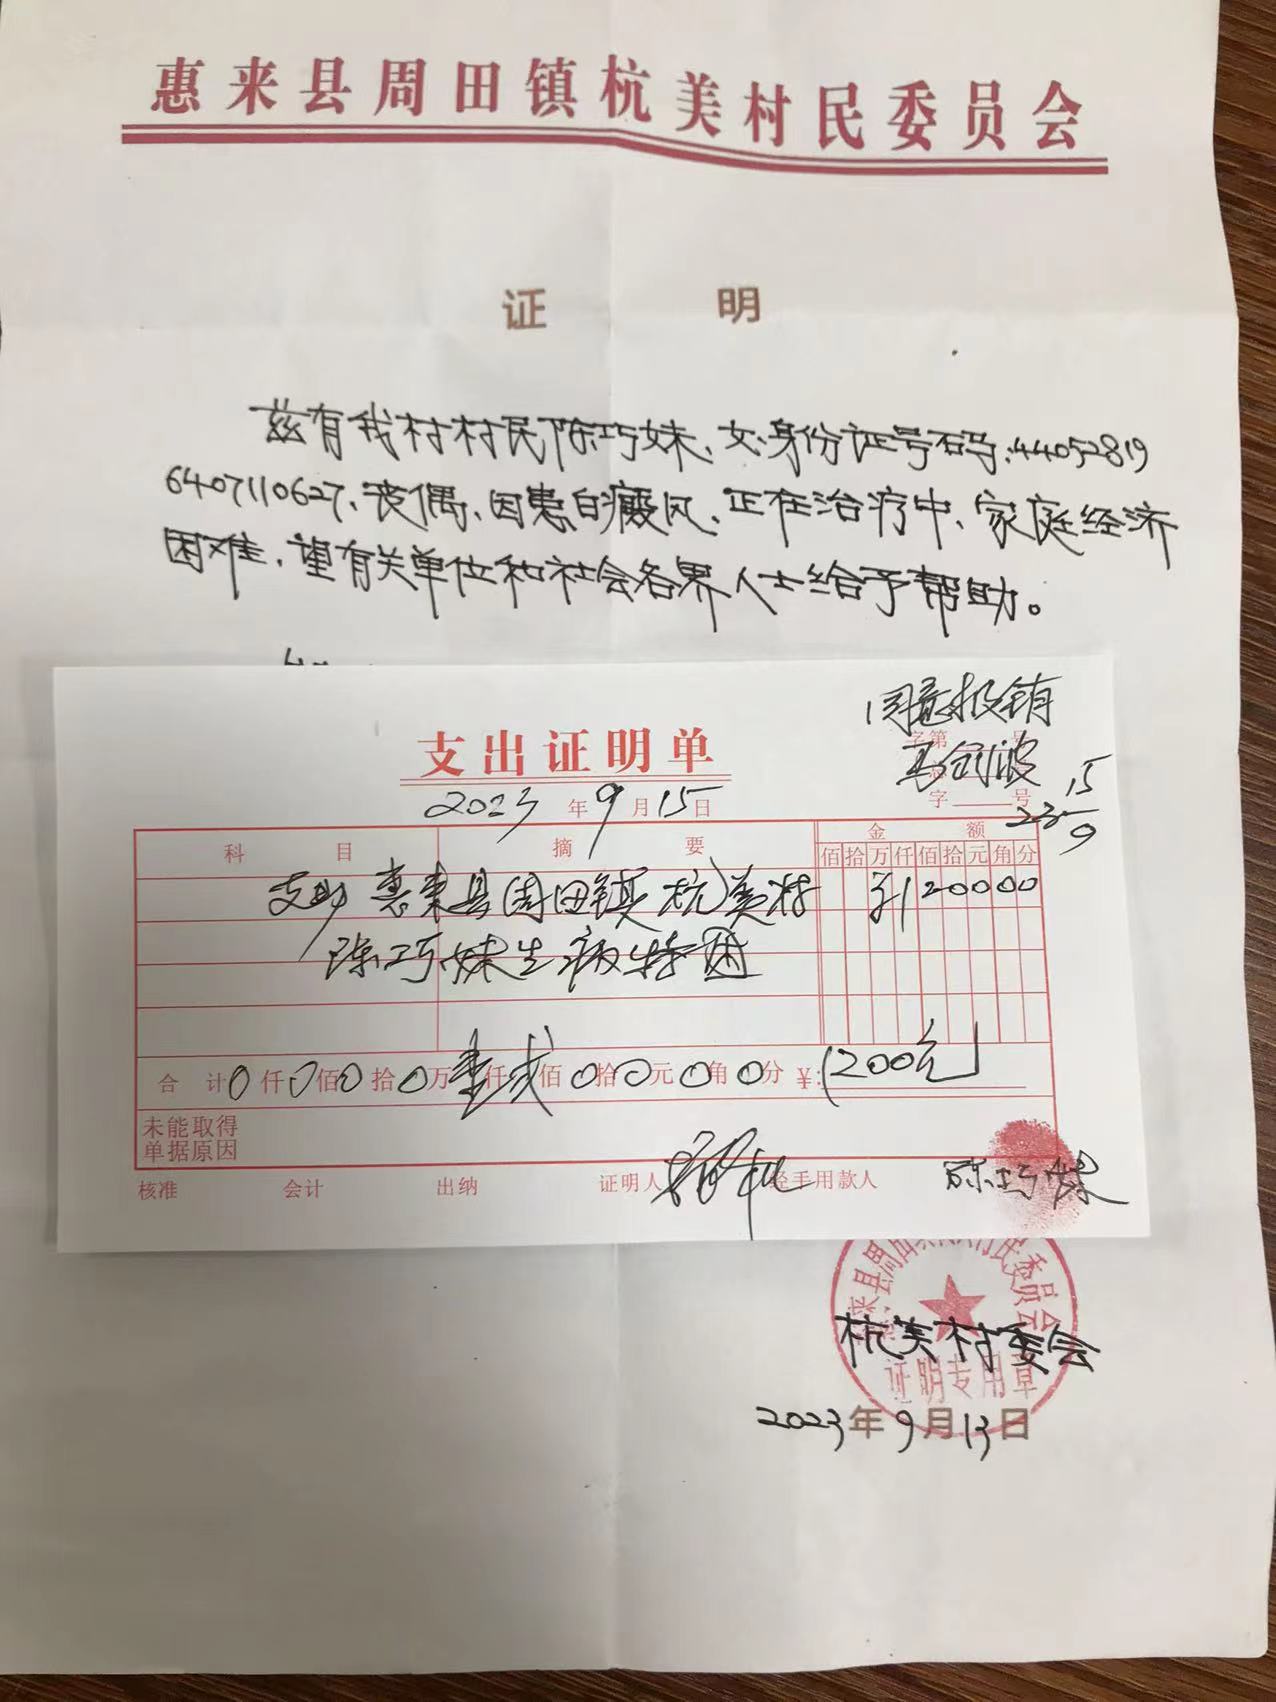 惠来县周田镇杭美村民委员会
证 明
兹有我村村民陈巧妹、女、身份证号码:44052819
6407110627、丧偶、因患白癜风、正在治疗中、家庭经济
困难、望有关单位和社会各界人士给予帮助。
同意报销
支出证明单
字第 号
字 号
2023年9月15日
23 15/9
科 目 摘 要 金 额
佰拾万仟佰拾元角分
支助惠来县周田镇杭美村 ¥120000
陈巧妹生病特困
合 计0仟0佰0拾0万壹仟贰佰0拾0元0角0分 ¥:1200元
未能取得
单据原因
核准 会计 出纳 证明人 经手用款人 陈巧妹
杭美村委会
证明专用章
2023年9月13日